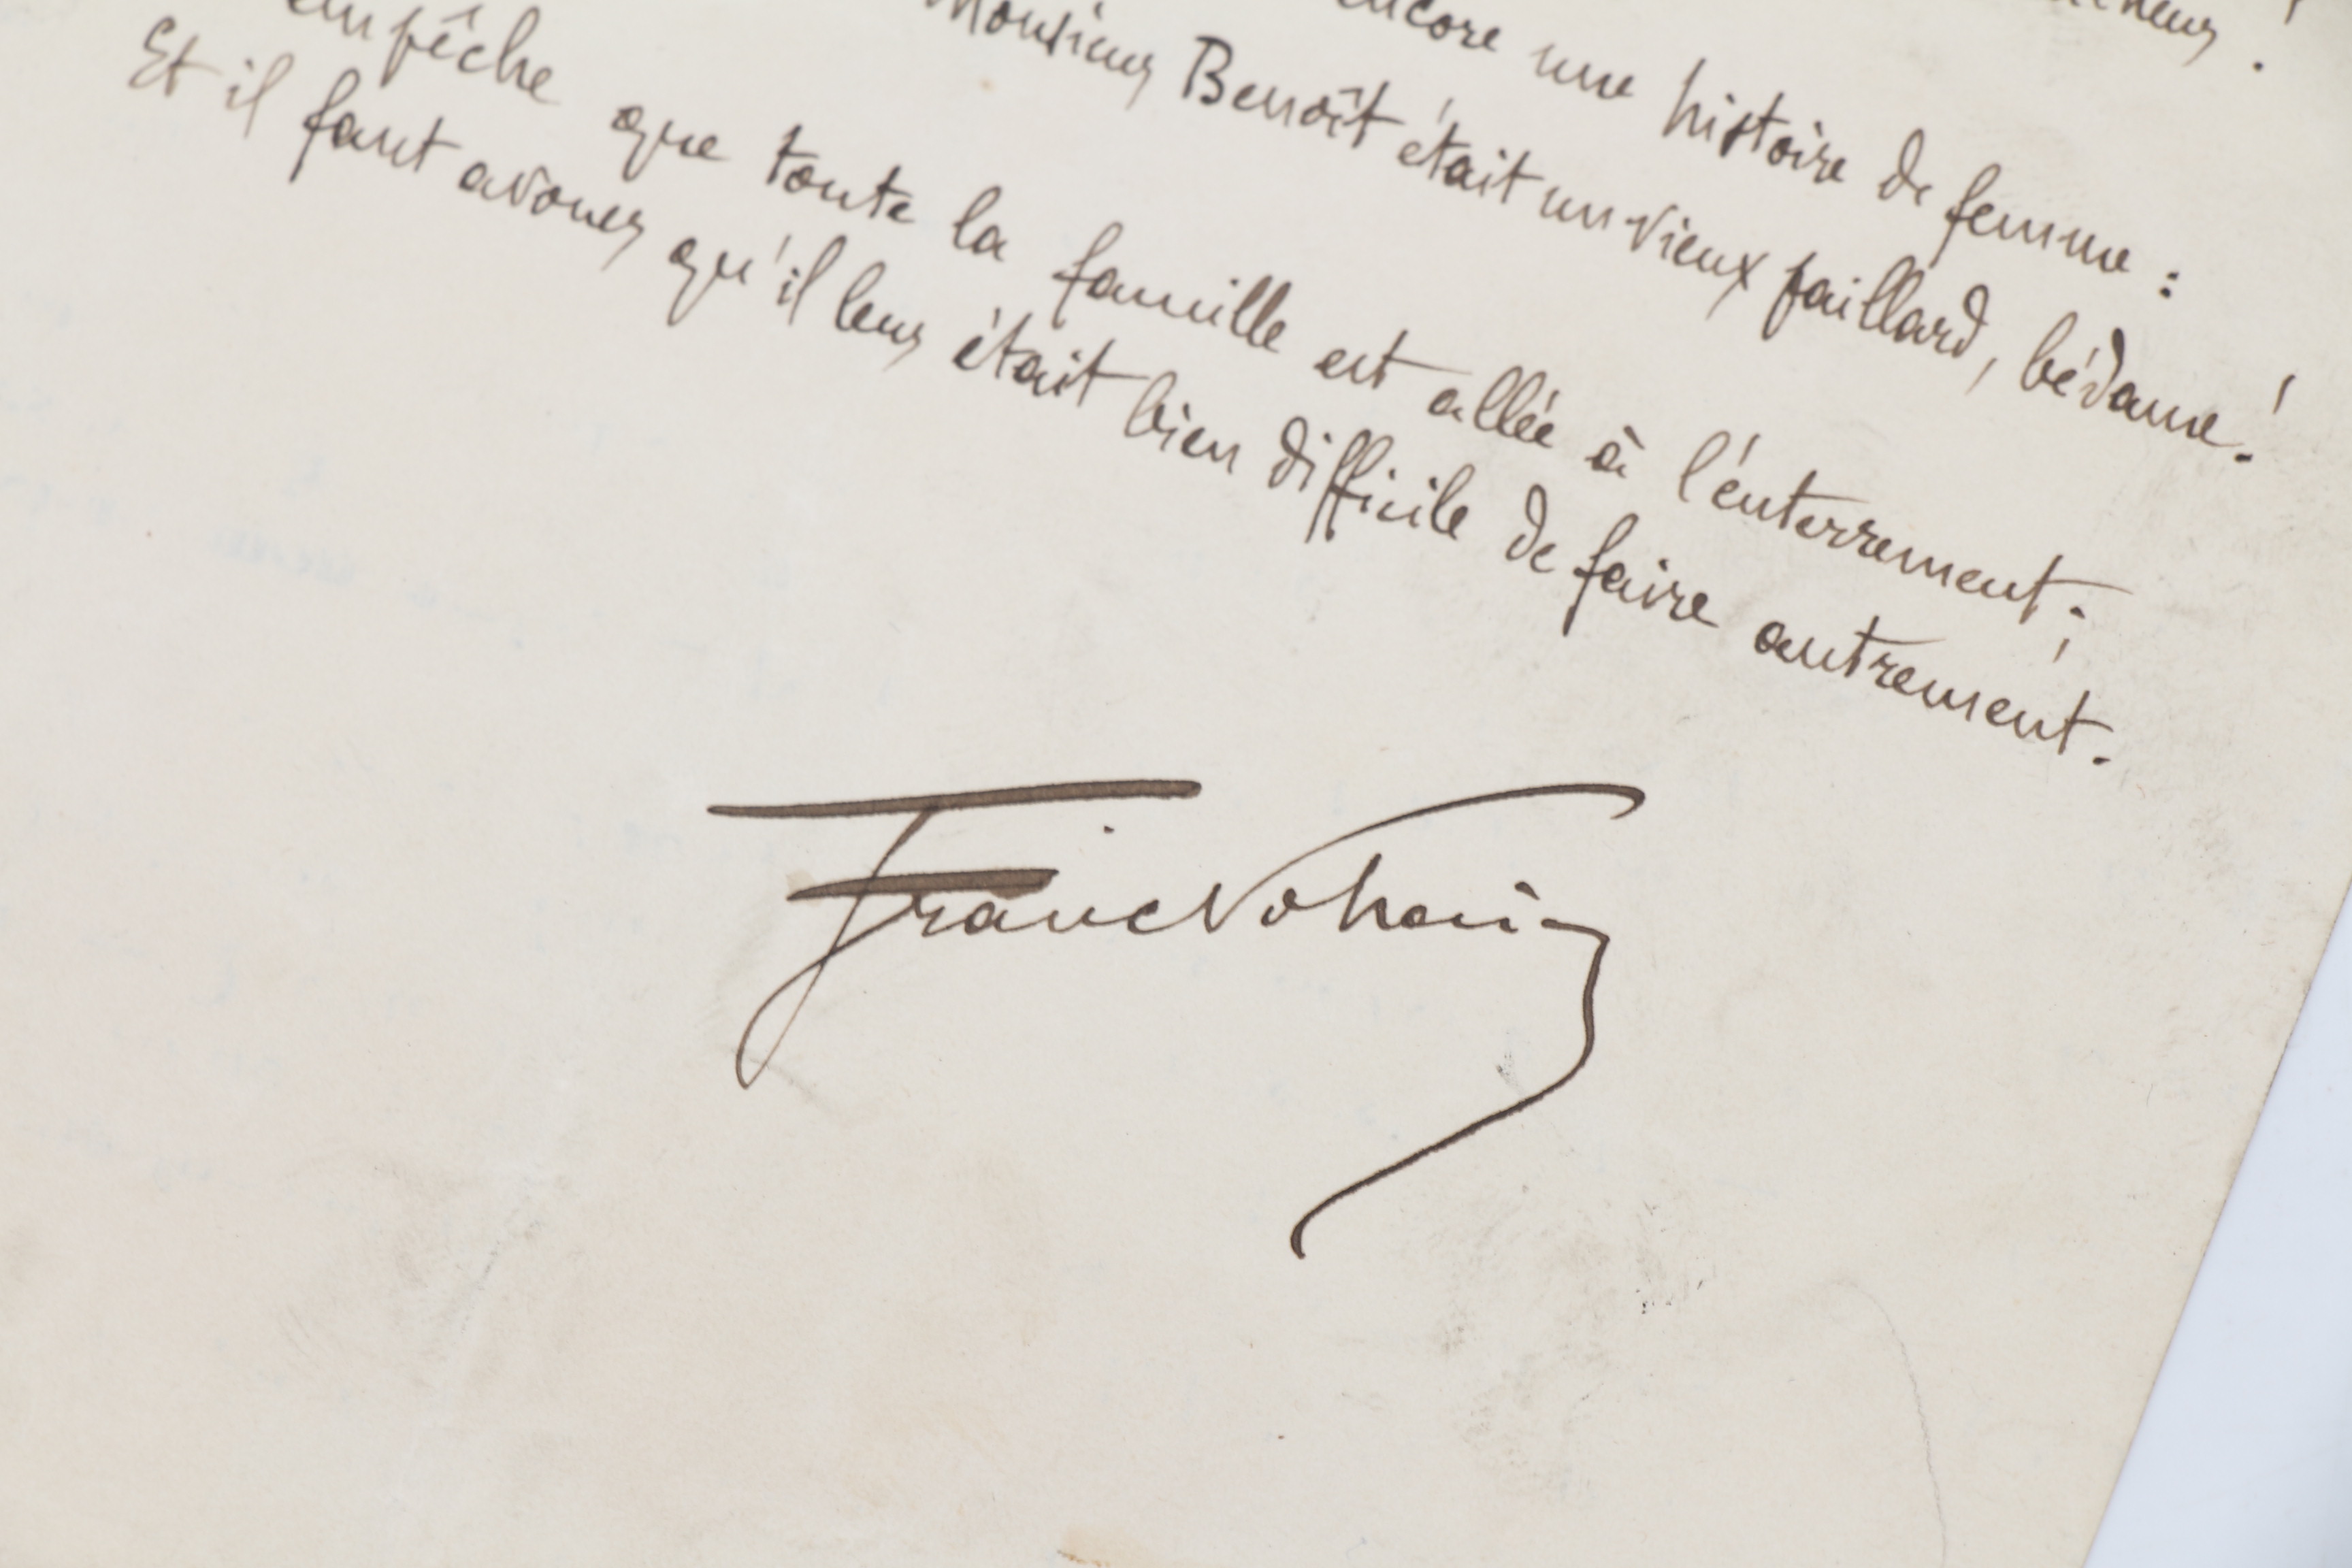 encore une histoire de femme :
Monsieur Benoît était un vieux paillard, bédame !
empêche que toute la famille est allée à l'enterrement ;
Et il faut avouer qu'il leur était bien difficile de faire autrement.
Franc-Nohain